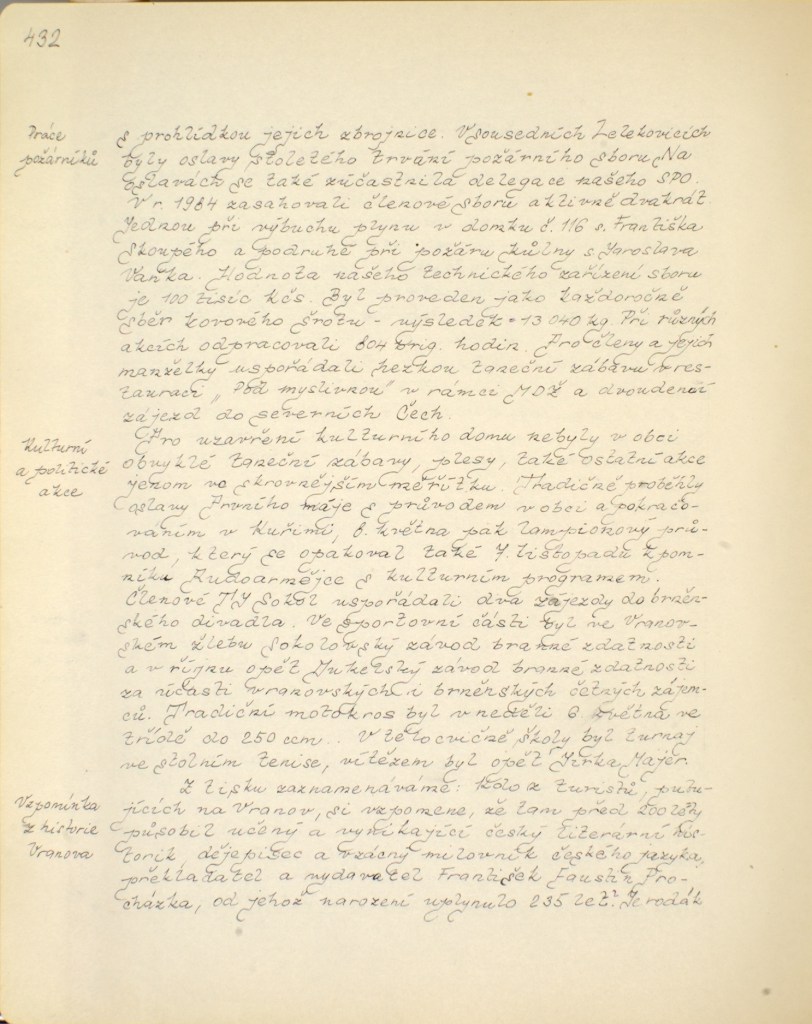 432
Práce
požárníků
s prohlídkou jejich zbrojnice. V sousedních Lelekovicích
byly oslavy stoletého trvání požárního sboru. Na
oslavách se také zúčastnila delegace našeho SPO.
V r. 1984 zasahovali členové sboru aktivně dvakrát.
Jednou při výbuchu plynu v domku č. 116 s. Františka
Skoupého a podruhé při požáru kůlny s. Jaroslava
Vaňka. Hodnota našeho technického zařízení sboru
je 100 tisíc kčs. Byl proveden jako každoročně
sběr kovového šrotu - výsledek = 13 040 kg. Při různých
akcích odpracovali 604 brig. hodin. Pro členy a jejich
manželky uspořádali hezkou taneční zábavu v res-
tauraci „Pod myslivnou" v rámci MDŽ a dvoudenní
zájezd do severních Čech.
Kulturní
a politické
akce
Pro uzavření kulturního domu nebyly v obci
obvyklé taneční zábavy, plesy, také ostatní akce
jenom ve skrovnějším měřítku. Tradičně proběhly
oslavy Prvního máje s průvodem v obci a pokračo-
váním v Kuřimi, 8. května pak lampionový prů-
vod, který se opakoval také 7. listopadu k pom-
níku Rudoarmějce s kulturním programem.
Členové TJ Sokol uspořádali dva zájezdy do brněn-
ského divadla. Ve sportovní části byl ve Vranov-
ském žlebu Sokolovský závod branné zdatnosti
a v říjnu opět Dukelský závod branné zdatnosti
za účasti vranovských i brněnských četných zájem-
ců. Tradiční motokros byl v neděli 6. května ve
třídě do 250 ccm. . V tělocvičně školy byl turnaj
ve stolním tenise, vítězem byl opět Jirka Majer.
Vzpomínka
z historie
Vranova
Z tisku zaznamenáváme: Kdo z turistů, putu-
jících na Vranov, si vzpomene, že tam před 200 lety
působil učený a vynikající český literární his-
torik, dějepisec a vzácný milovník českého jazyka,
překladatel a vydavatel František Faustin Pro-
cházka, od jehož narození uplynulo 235 let? Je rodák